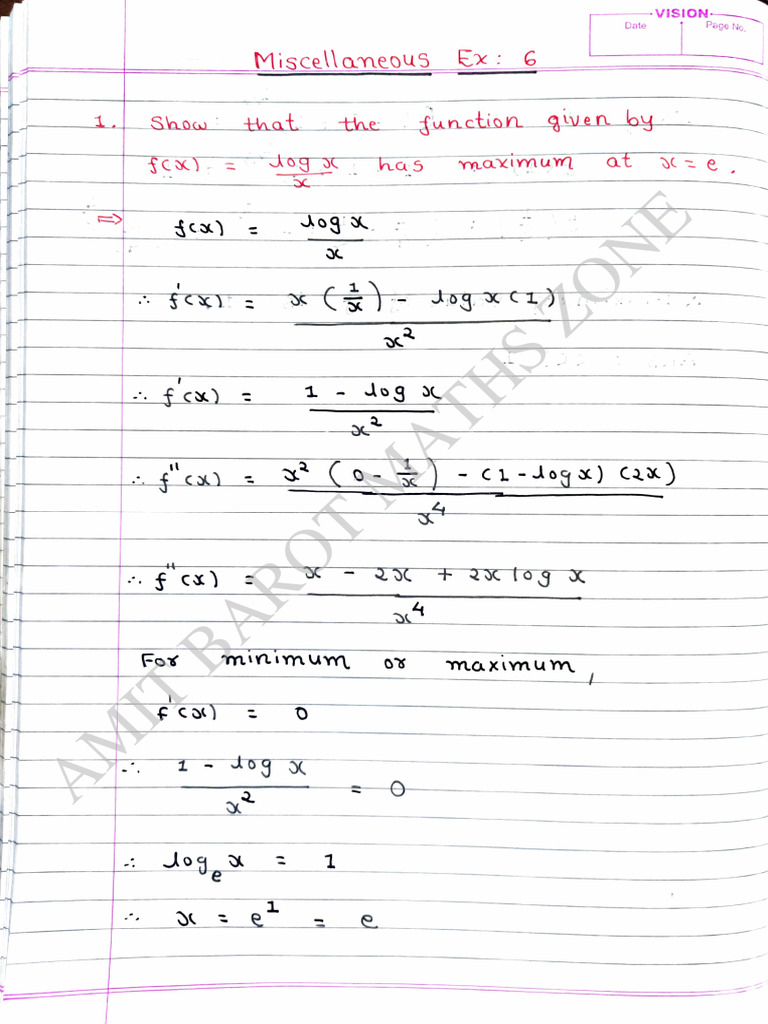 VISION
Date Page No.
Miscellaneous Ex: 6
1. Show that the function given by
f(x) = log x / x has maximum at x = e.
⇒ f(x) = log x / x
∴ f'(x) = x (1/x) - log x (1) / x²
∴ f'(x) = 1 - log x / x²
∴ f''(x) = x² (0 - 1/x) - (1 - log x) (2x) / x⁴
∴ f''(x) = x - 2x + 2x log x / x⁴
For minimum or maximum,
f'(x) = 0
∴ 1 - log x / x² = 0
∴ logₑ x = 1
∴ x = e¹ = e
AMIT BAROT MATHS ZONE